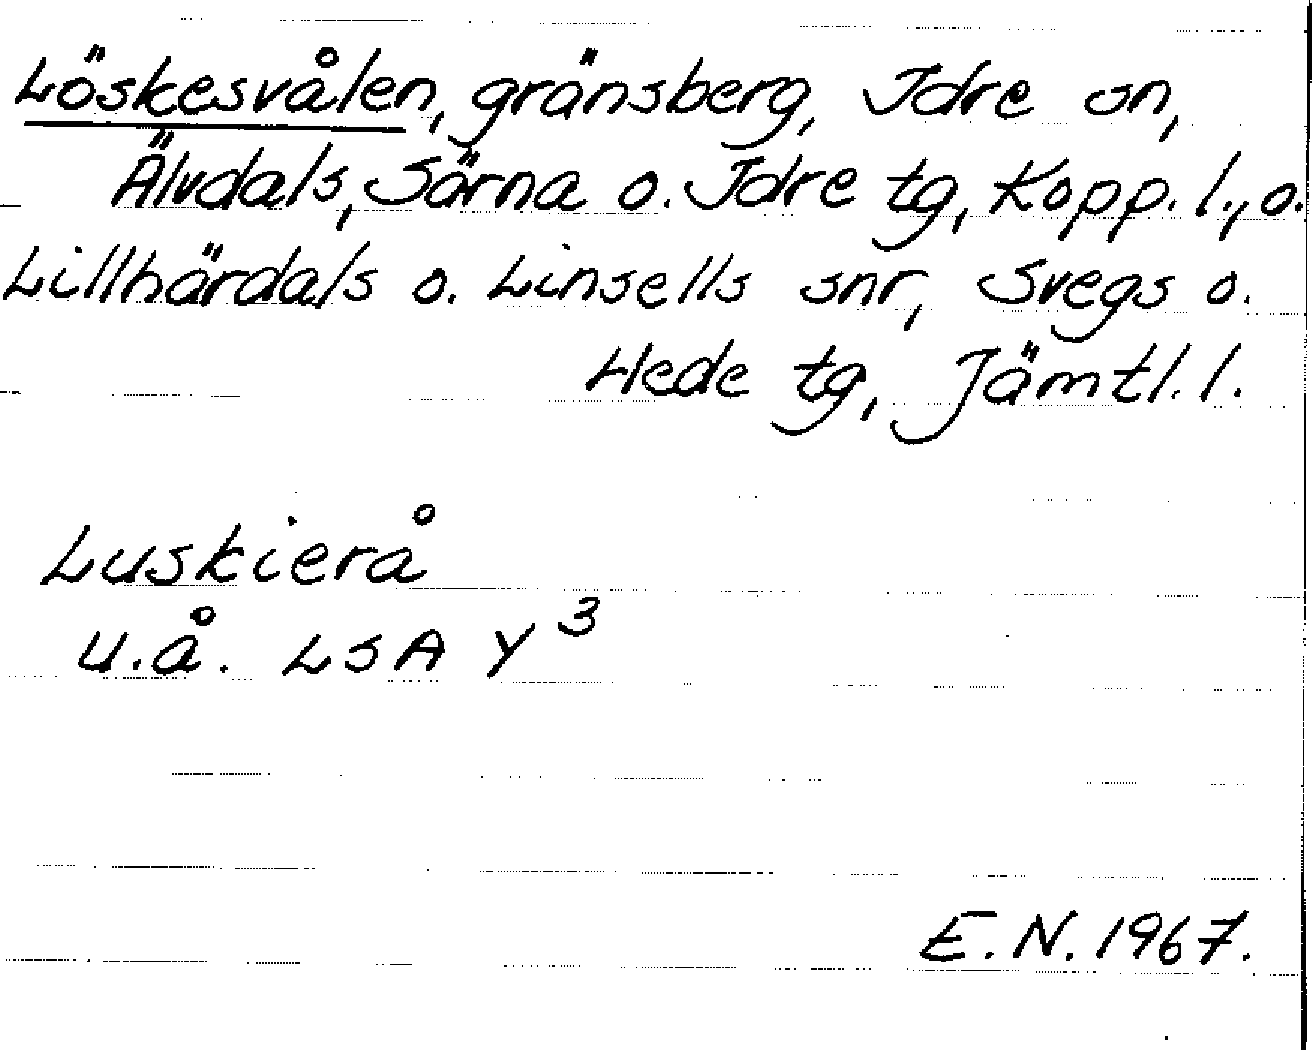 Löskesvålen, gränsberg, Idre sn,
Älvdals, Särna o. Idre tg, Kopp. l., o.
Lillhärdals o. Linsells snr, Svegs o.
Hede tg, Jämtl. l.
Luskierå
u.å. LSA Y³
E.N. 1967.